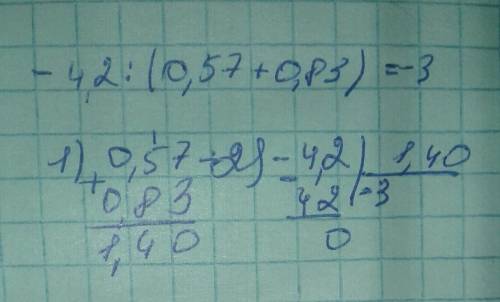 - 4,2 : (0,57 + 0,83) = -3
1) 0,57 2) - 4,2 | 1,40
+ 0,83 - 42 | -3
1,40 0